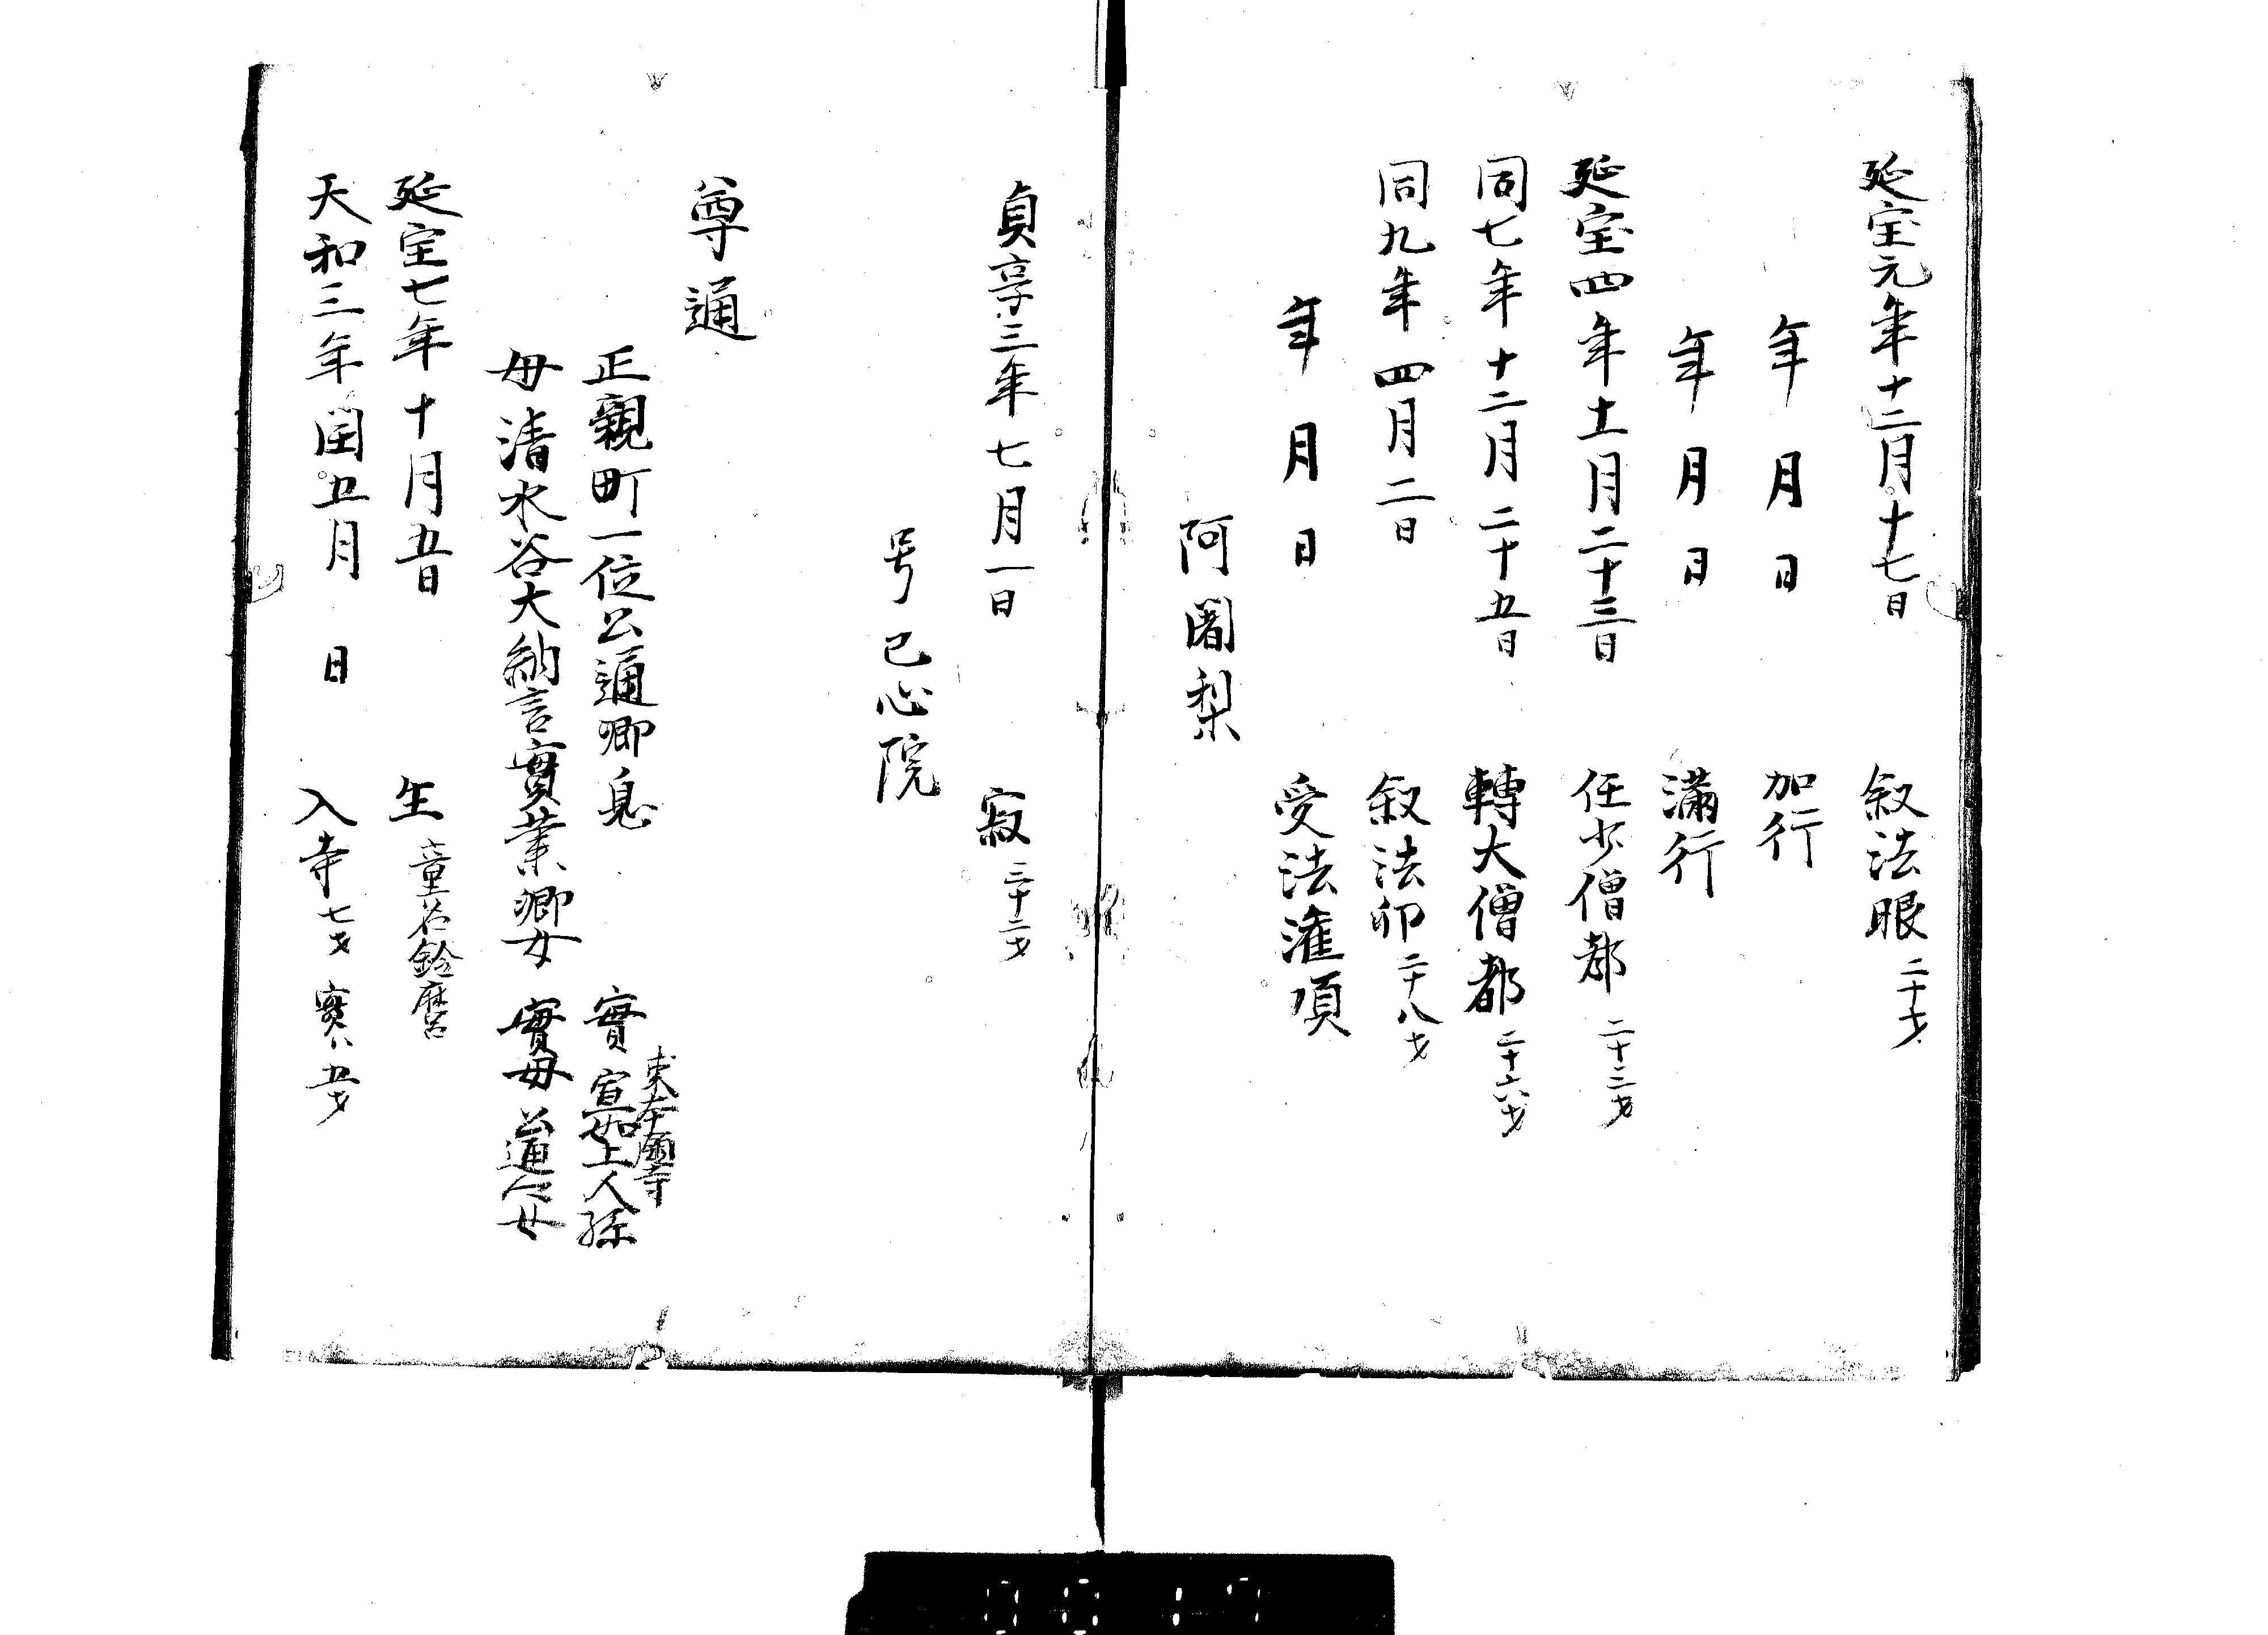 延宝元年十二月十七日　叙法眼 二十才
年　月　日　加行
年　月　日　滿行
延宝四年十一月二十三日　任少僧都 二十三才
同七年十二月二十五日　轉大僧都 二十六才
同九年四月二日　叙法印 二十八才
年　月　日　受法灌頂
阿闍梨
貞享三年七月一日　寂 三十三才
号已心院
尊通
正親町一位公通卿息　實 東本願寺 宣如上人孫
母清水谷大納言實業卿女　實母 公通公女
延宝七年十月五日　生 童名鈴麿
天和三年閏五月　日　入寺 七才 實ハ五才